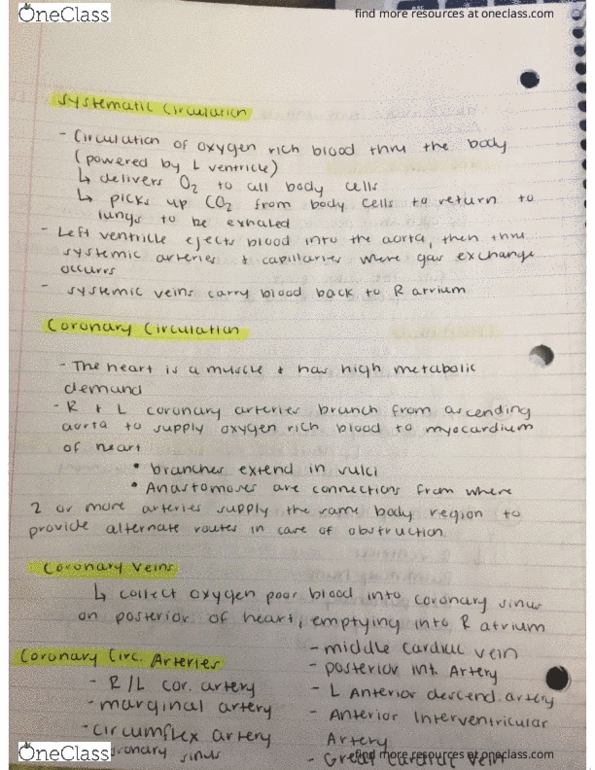 OneClass
find more resources at oneclass.com
Systematic Circulation
- Circulation of oxygen rich blood thru the body
(powered by L ventricle)
↳ delivers O2 to all body cells
↳ picks up CO2 from body cells to return to
lungs to be exhaled
- Left ventricle ejects blood into the aorta, then thru
systemic arteries + capillaries where gas exchange
occurs
- systemic veins carry blood back to R atrium
Coronary Circulation
- The heart is a muscle + has high metabolic
demand
- R + L coronary arteries branch from ascending
aorta to supply oxygen rich blood to myocardium
of heart
• branches extend in vulci
• Anastomoses are connections from where
2 or more arteries supply the same body region to
provide alternate routes in care of obstruction
Coronary Veins
↳ collect oxygen poor blood into coronary sinus
on posterior of heart, emptying into R atrium
Coronary Circ. Arteries
- R/L cor. artery
- marginal artery
- circumflex artery
coronary sinus
- middle cardiac vein
- posterior int. Artery
- L Anterior descend. artery
- Anterior Interventricular
Artery
- Great cardiac vein
OneClass
find more resources at oneclass.com